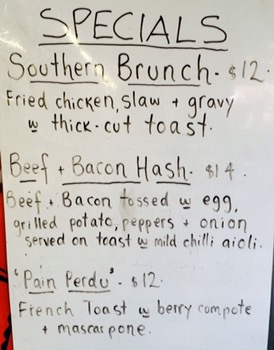 SPECIALS
Southern Brunch - $12.
Fried chicken, slaw + gravy
w thick-cut toast.
Beef + Bacon Hash - $14.
Beef + Bacon tossed w egg,
grilled potato, peppers + onion
served on toast w mild chilli aioli.
'Pain Perdu' - $12.
French Toast w berry compote
+ mascarpone.